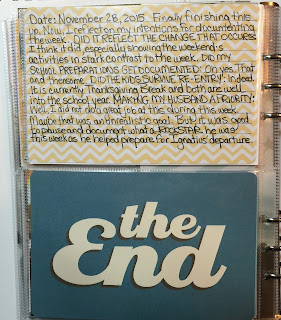 Date: November 28, 2015. Finally finishing this
up. Now, I reflect on my intentions for documenting
the week. DID IT REFLECT THE CHANGE THAT OCCURS:
I think it did especially showing the weekend's
activities in stark contrast to the week. DID MY
SCHOOL PREPARATIONS GET DOCUMENTED: Oh yes. That
and then some. DID THE KIDS SURVIVE RE-ENTRY: Indeed.
It is currently Thanksgiving Break and both are well
into the school year. MAKING MY HUSBAND A PRIORITY:
Well, I did not do a great job at this during this week.
Maybe that was an unrealistic goal. But it was good
to pause and document what a ROCKSTAR he was
this week as he helped prepare for Ignatius' departure.
the
End